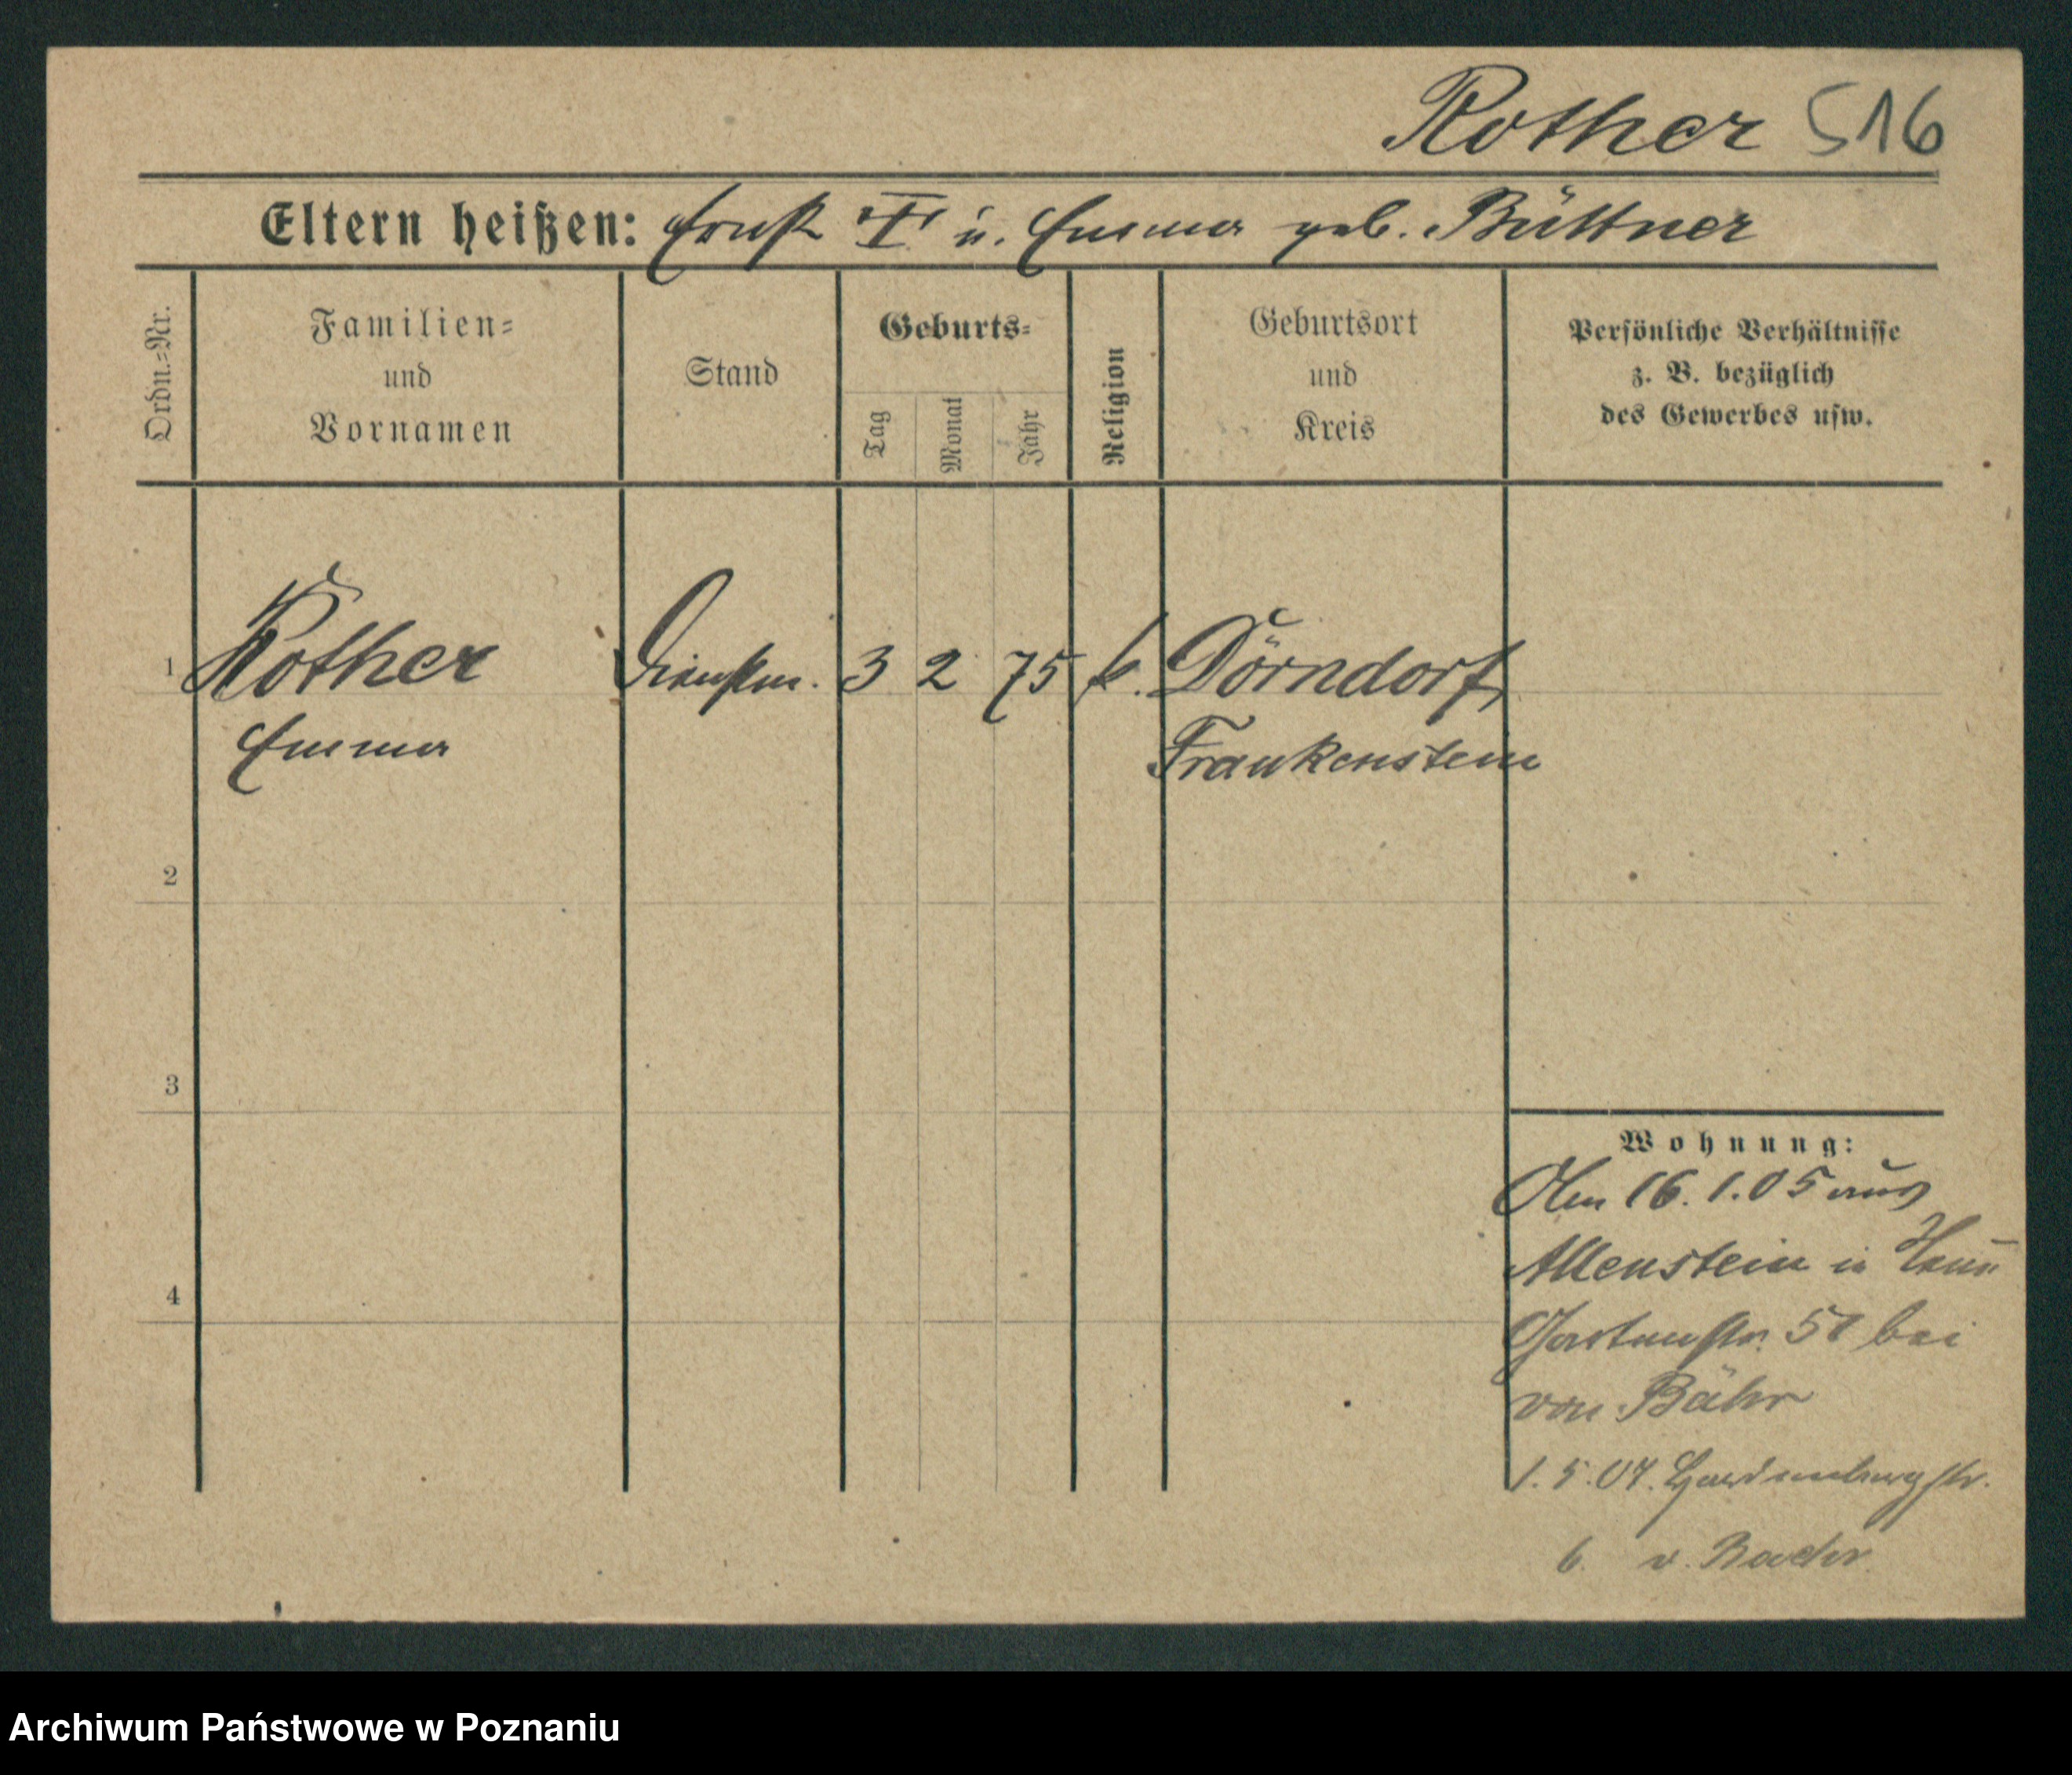 Rother 516
Eltern heißen: Ernst u. Emma geb. Büttner
Ordn.=Nr.
Familien=
und
Vornamen
Stand
Geburts=
Tag
Monat
Jahr
Religion
Geburtsort
und
Kreis
Persönliche Verhältnisse
z. B. bezüglich
des Gewerbes usw.
1 Rother Dienstm. 3 2 75 k. Dörndorf
Emma Frankenstein
2
3
4
Wohnung:
Am 16. 1. 05 aus
Allenstein in
Gartenstr. bei
von Bähr
1. 5. 07. Hardenbergstr.
6 v. Baehr
Archiwum Państwowe w Poznaniu